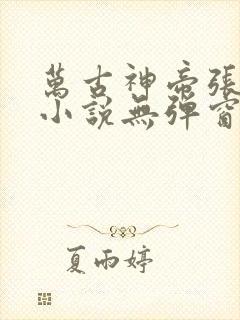 萬古神帝張
小說無彈窗
夏雨婷